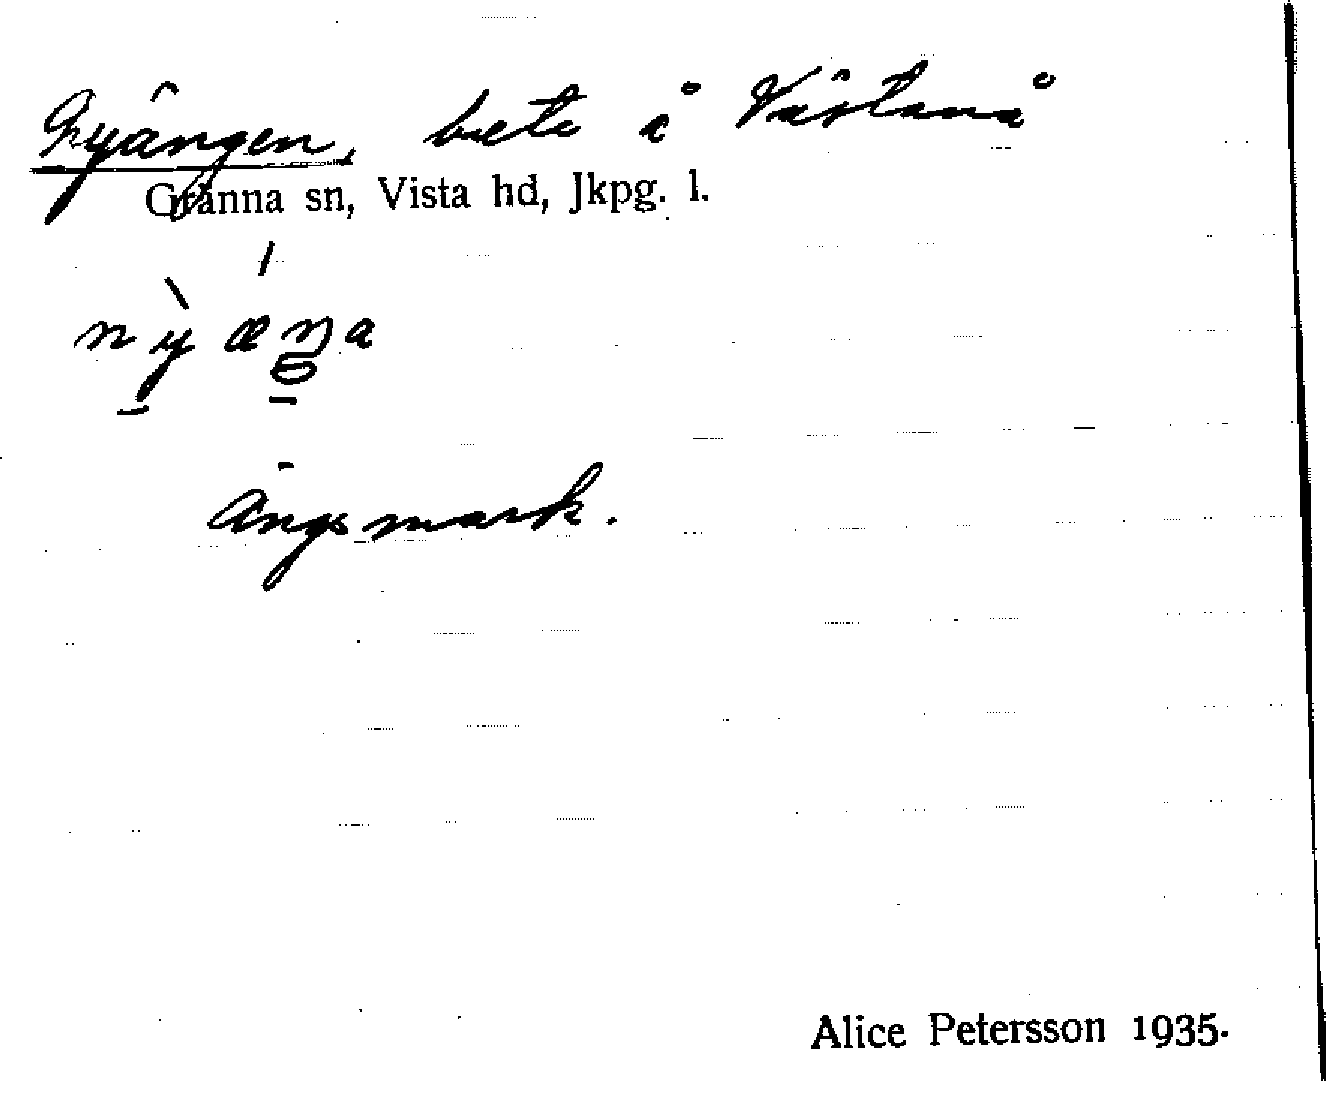 Nyängen, bete å Västanå
Gränna sn, Vista hd, Jkpg. l.
nỳ æŋa
Ängsmark.
Alice Petersson 1935.